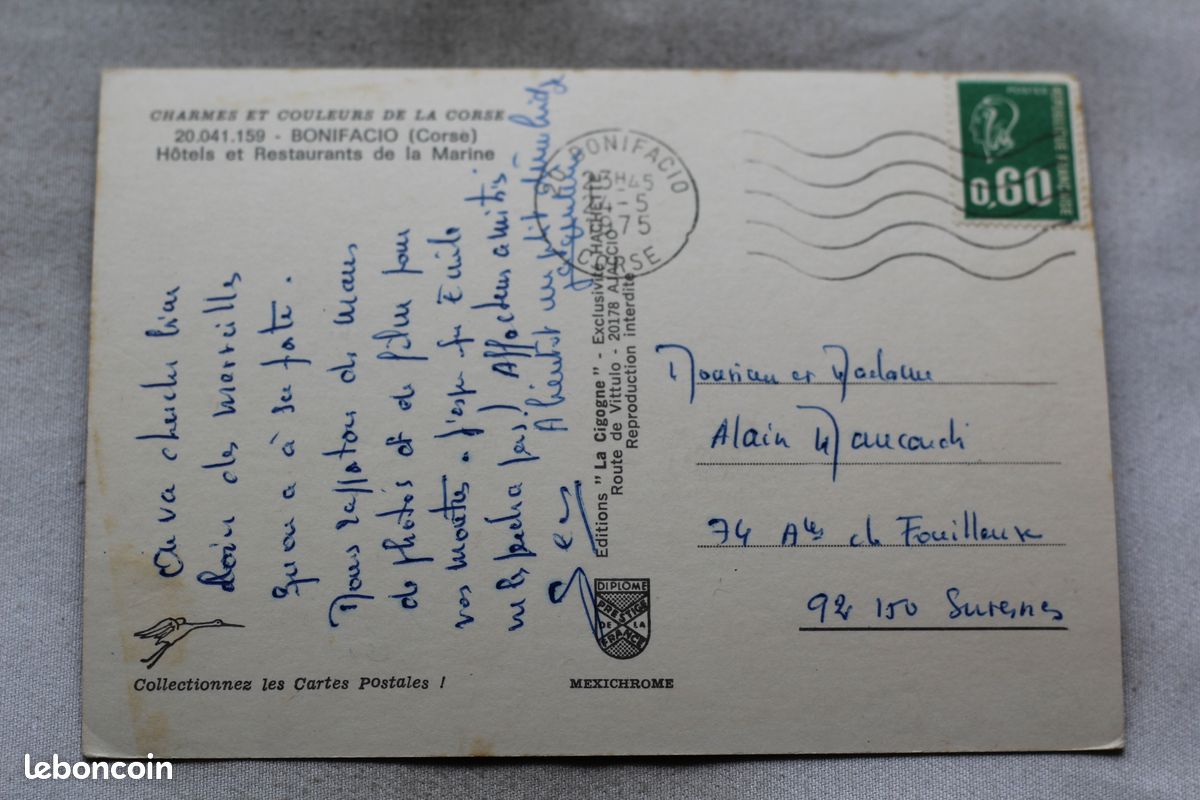 CHARMES ET COULEURS DE LA CORSE
20.041.159 - BONIFACIO (Corse)
Hôtels et Restaurants de la Marine
On va chercher bien
loin des merveilles
qu'on a à sa porte.
Nous rapportons des
de photos et de films pour
vos montrer. J'espère
ne les pas) Affectueuse amitié
A bientôt un petit
20 BONIFACIO
13H45
5
1975
CORSE
POSTES
REPUBLIQUE FRANCAISE
0,60
Editions "La Cigogne" - Exclusivité HACHETTE
Route de Vittulo - 20178 AJACCIO
Reproduction interdite
Monsieur et Madame
Alain
74 Alées de Fouilleuse
92 150 Suresnes
DIPLOME
PRESTIGE
DE LA
FRANCE
Collectionnez les Cartes Postales !
MEXICHROME
leboncoin